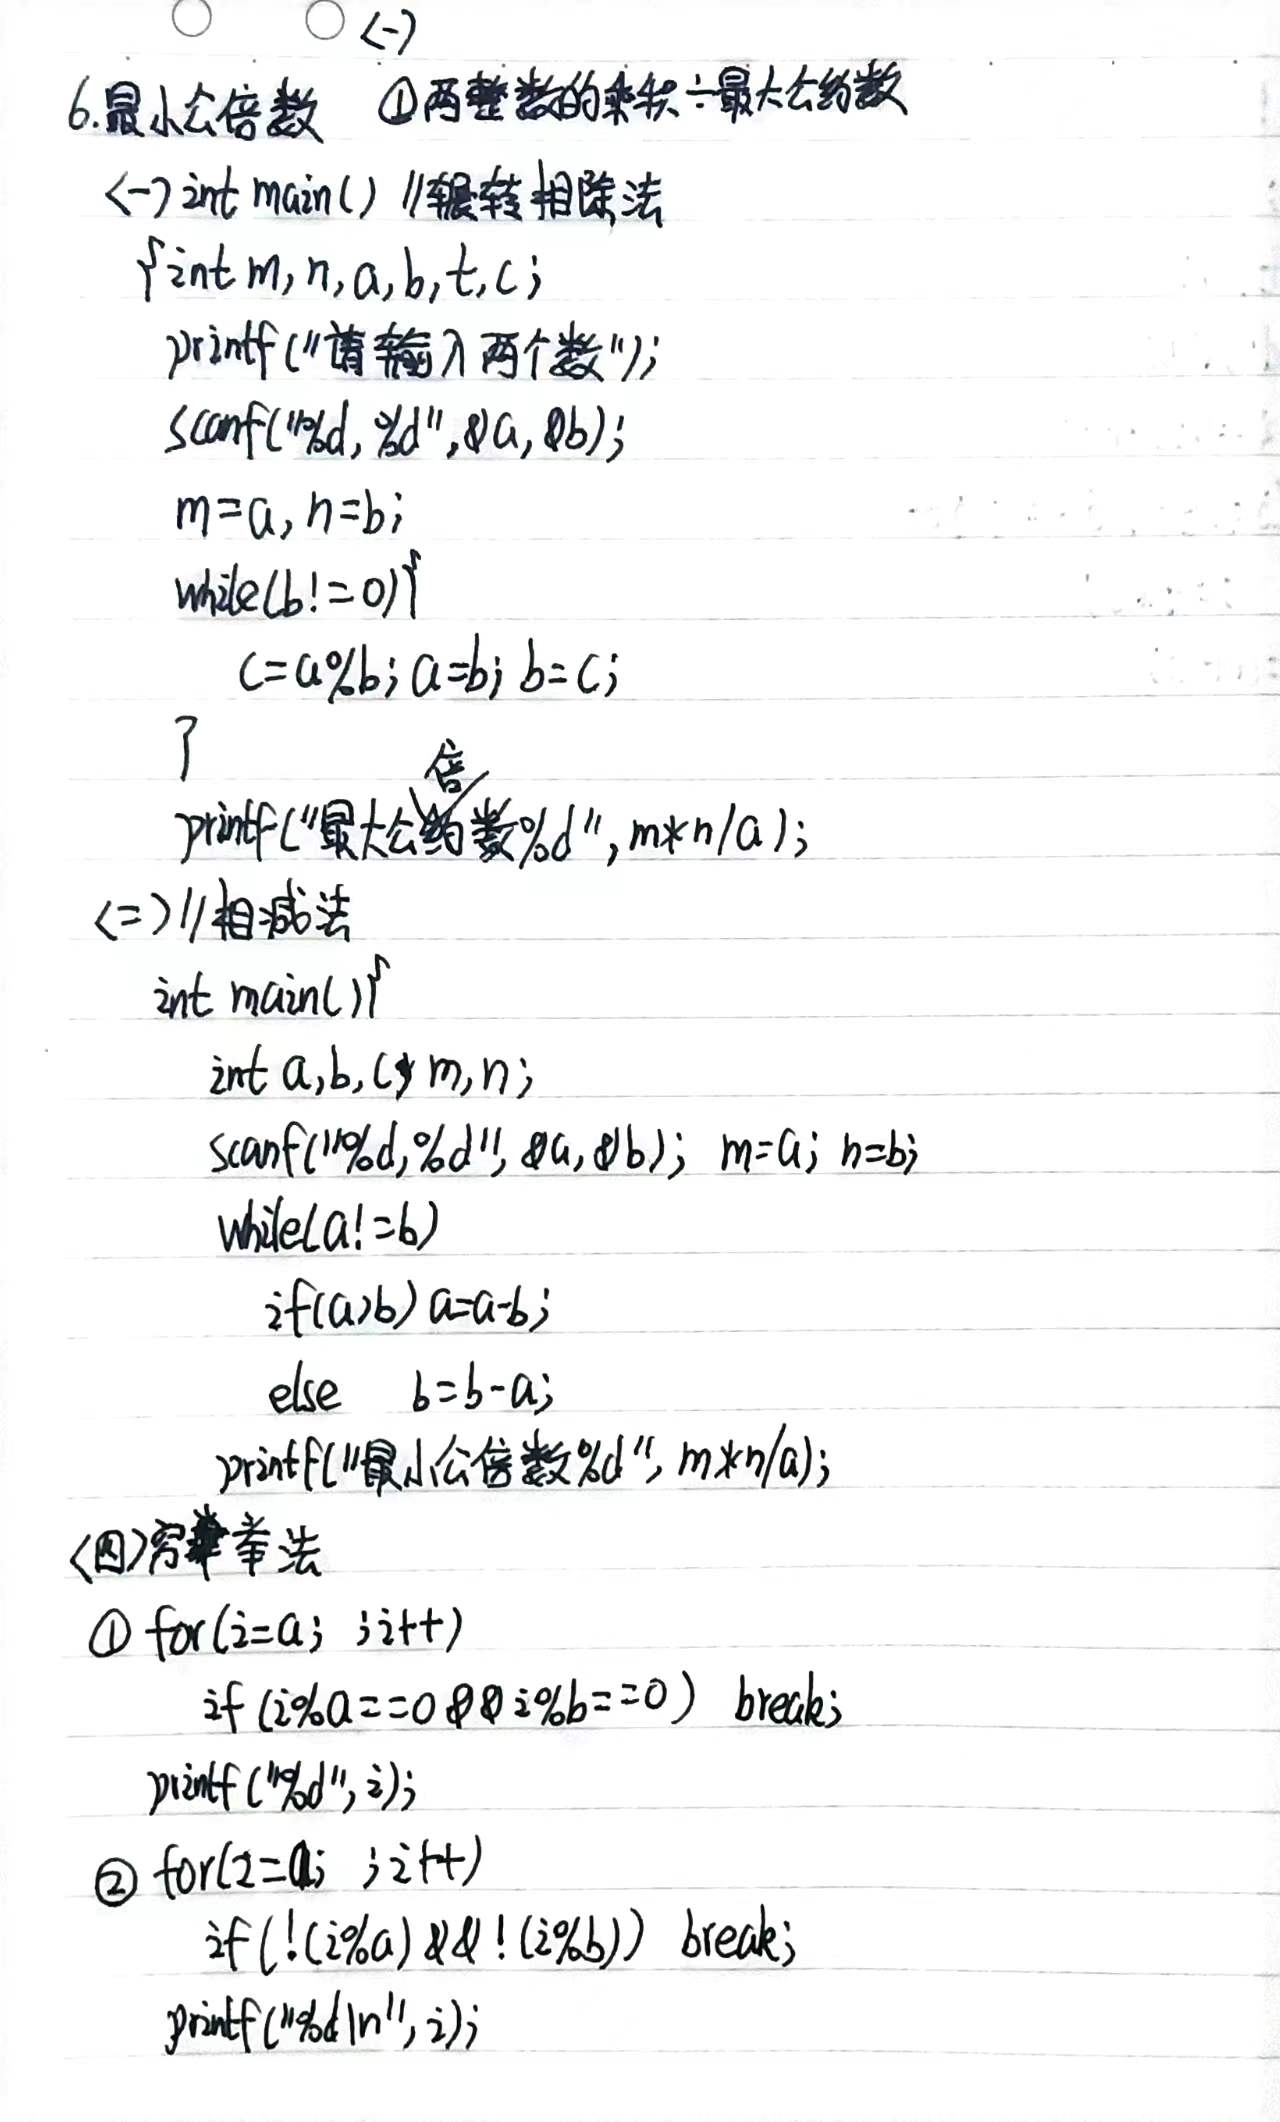 <一>
6.最小公倍数 ①两整数的乘积÷最大公约数
<一> int main() //辗转相除法
{int m, n, a, b, t, c;
printf("请输入两个数");
scanf("%d, %d", &a, &b);
m=a, n=b;
while(b!=0){
c=a%b; a=b; b=c;
}
倍
printf("最大公约数%d", m*n/a);
<二>//相减法
int main(){
int a, b, c, m, n;
scanf("%d,%d", &a, &b); m=a; n=b;
while(a!=b)
if(a>b) a=a-b;
else b=b-a;
printf("最小公倍数%d", m*n/a);
<四>穷举法
① for(i=a; ;i++)
if(i%a==0 && i%b==0) break;
printf("%d", i);
② for(i=a; ;i++)
if(!(i%a) && !(i%b)) break;
printf("%d\n", i);